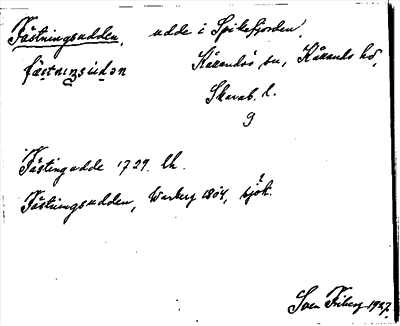 Fästningsudden, udde i Spikefjorden,
fæstnɪŋsùdən Kållandsö sn, Kållands hd,
Skarab. l.
9
Fästingudde 1739. lk.
Fästningsudden, Warberg 1804, sjök.
Sven Friberg 1927.